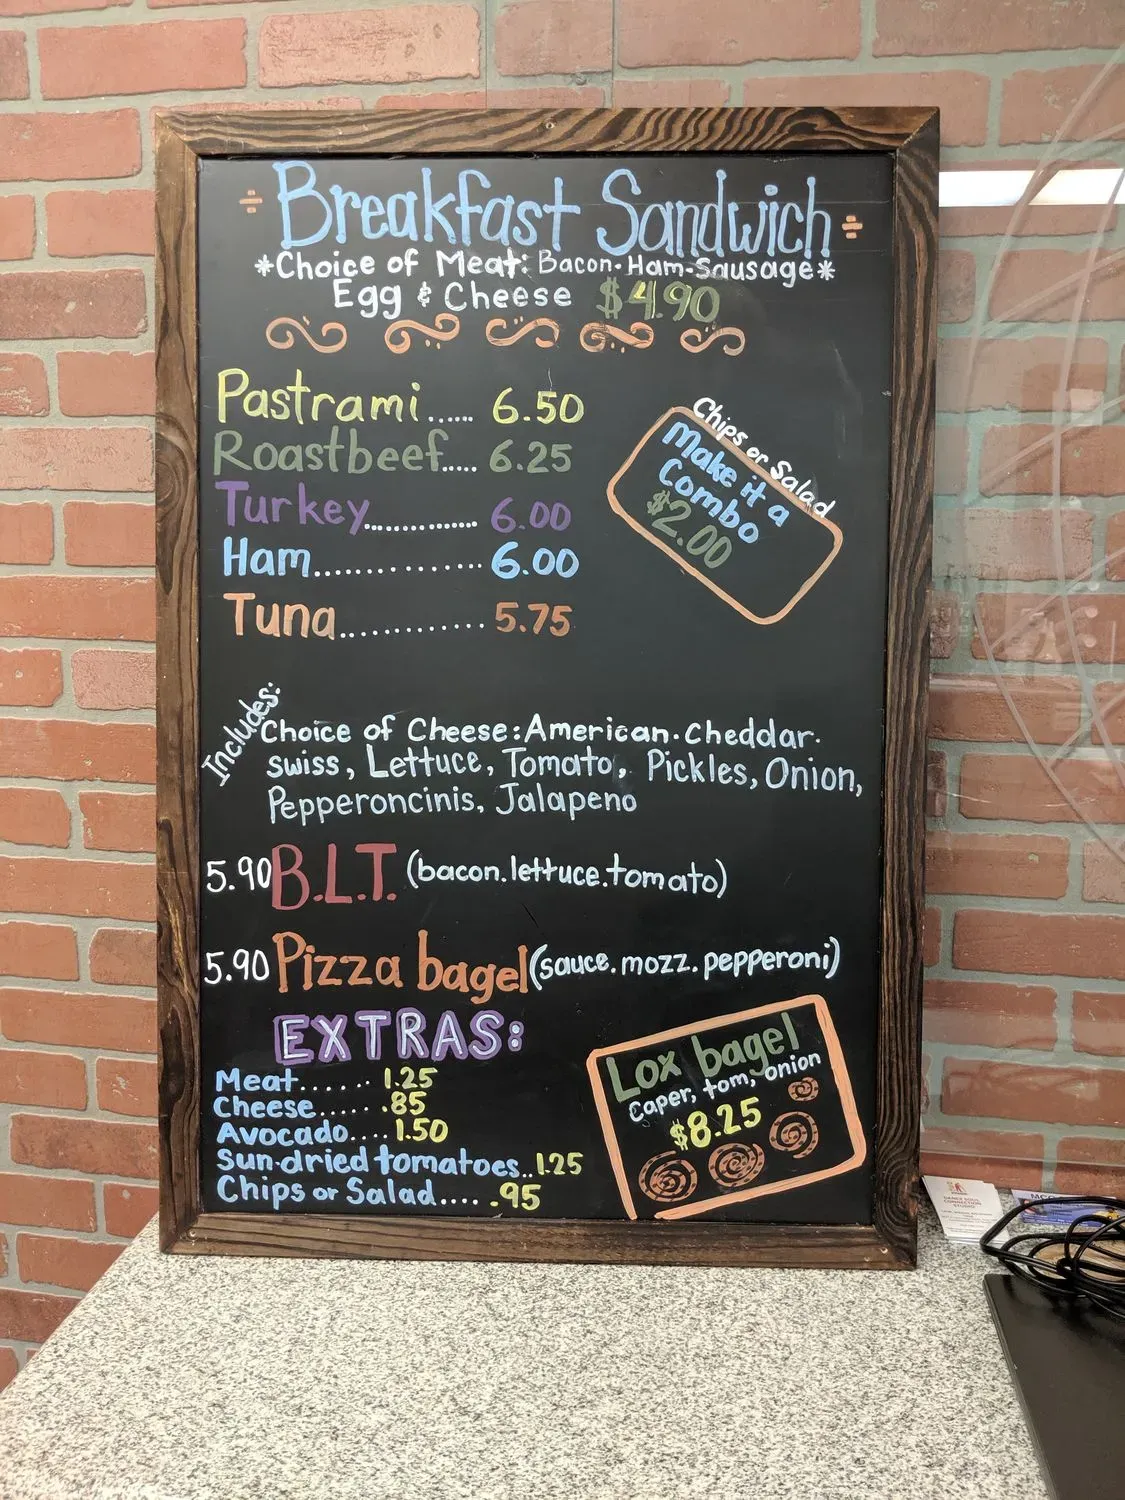 ÷ Breakfast Sandwich ÷
*Choice of Meat: Bacon·Ham·Sausage*
Egg & Cheese $4.90
Pastrami...... 6.50
Roastbeef..... 6.25
Turkey.............. 6.00
Ham................ 6.00
Tuna............. 5.75
Chips or Salad
Make it a
Combo
$2.00
Includes:
Choice of Cheese: American·Cheddar·
swiss, Lettuce, Tomato, Pickles, Onion,
Pepperoncinis, Jalapeno
5.90 B.L.T. (bacon.lettuce.tomato)
5.90 Pizza bagel (sauce.mozz.pepperoni)
EXTRAS:
Meat...... 1.25
Cheese..... .85
Avocado.... 1.50
Sun-dried tomatoes.. 1.25
Chips or Salad.... .95
Lox bagel
Caper, tom, onion
$8.25